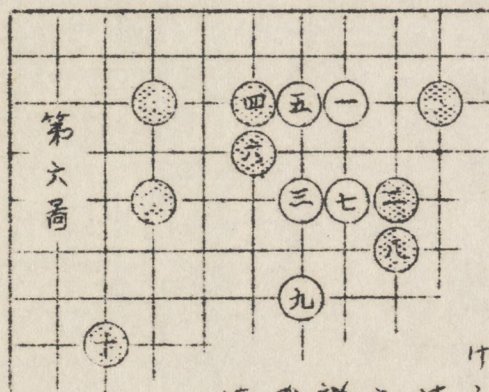 第六啚
四五一
六
三七二
八
九
十